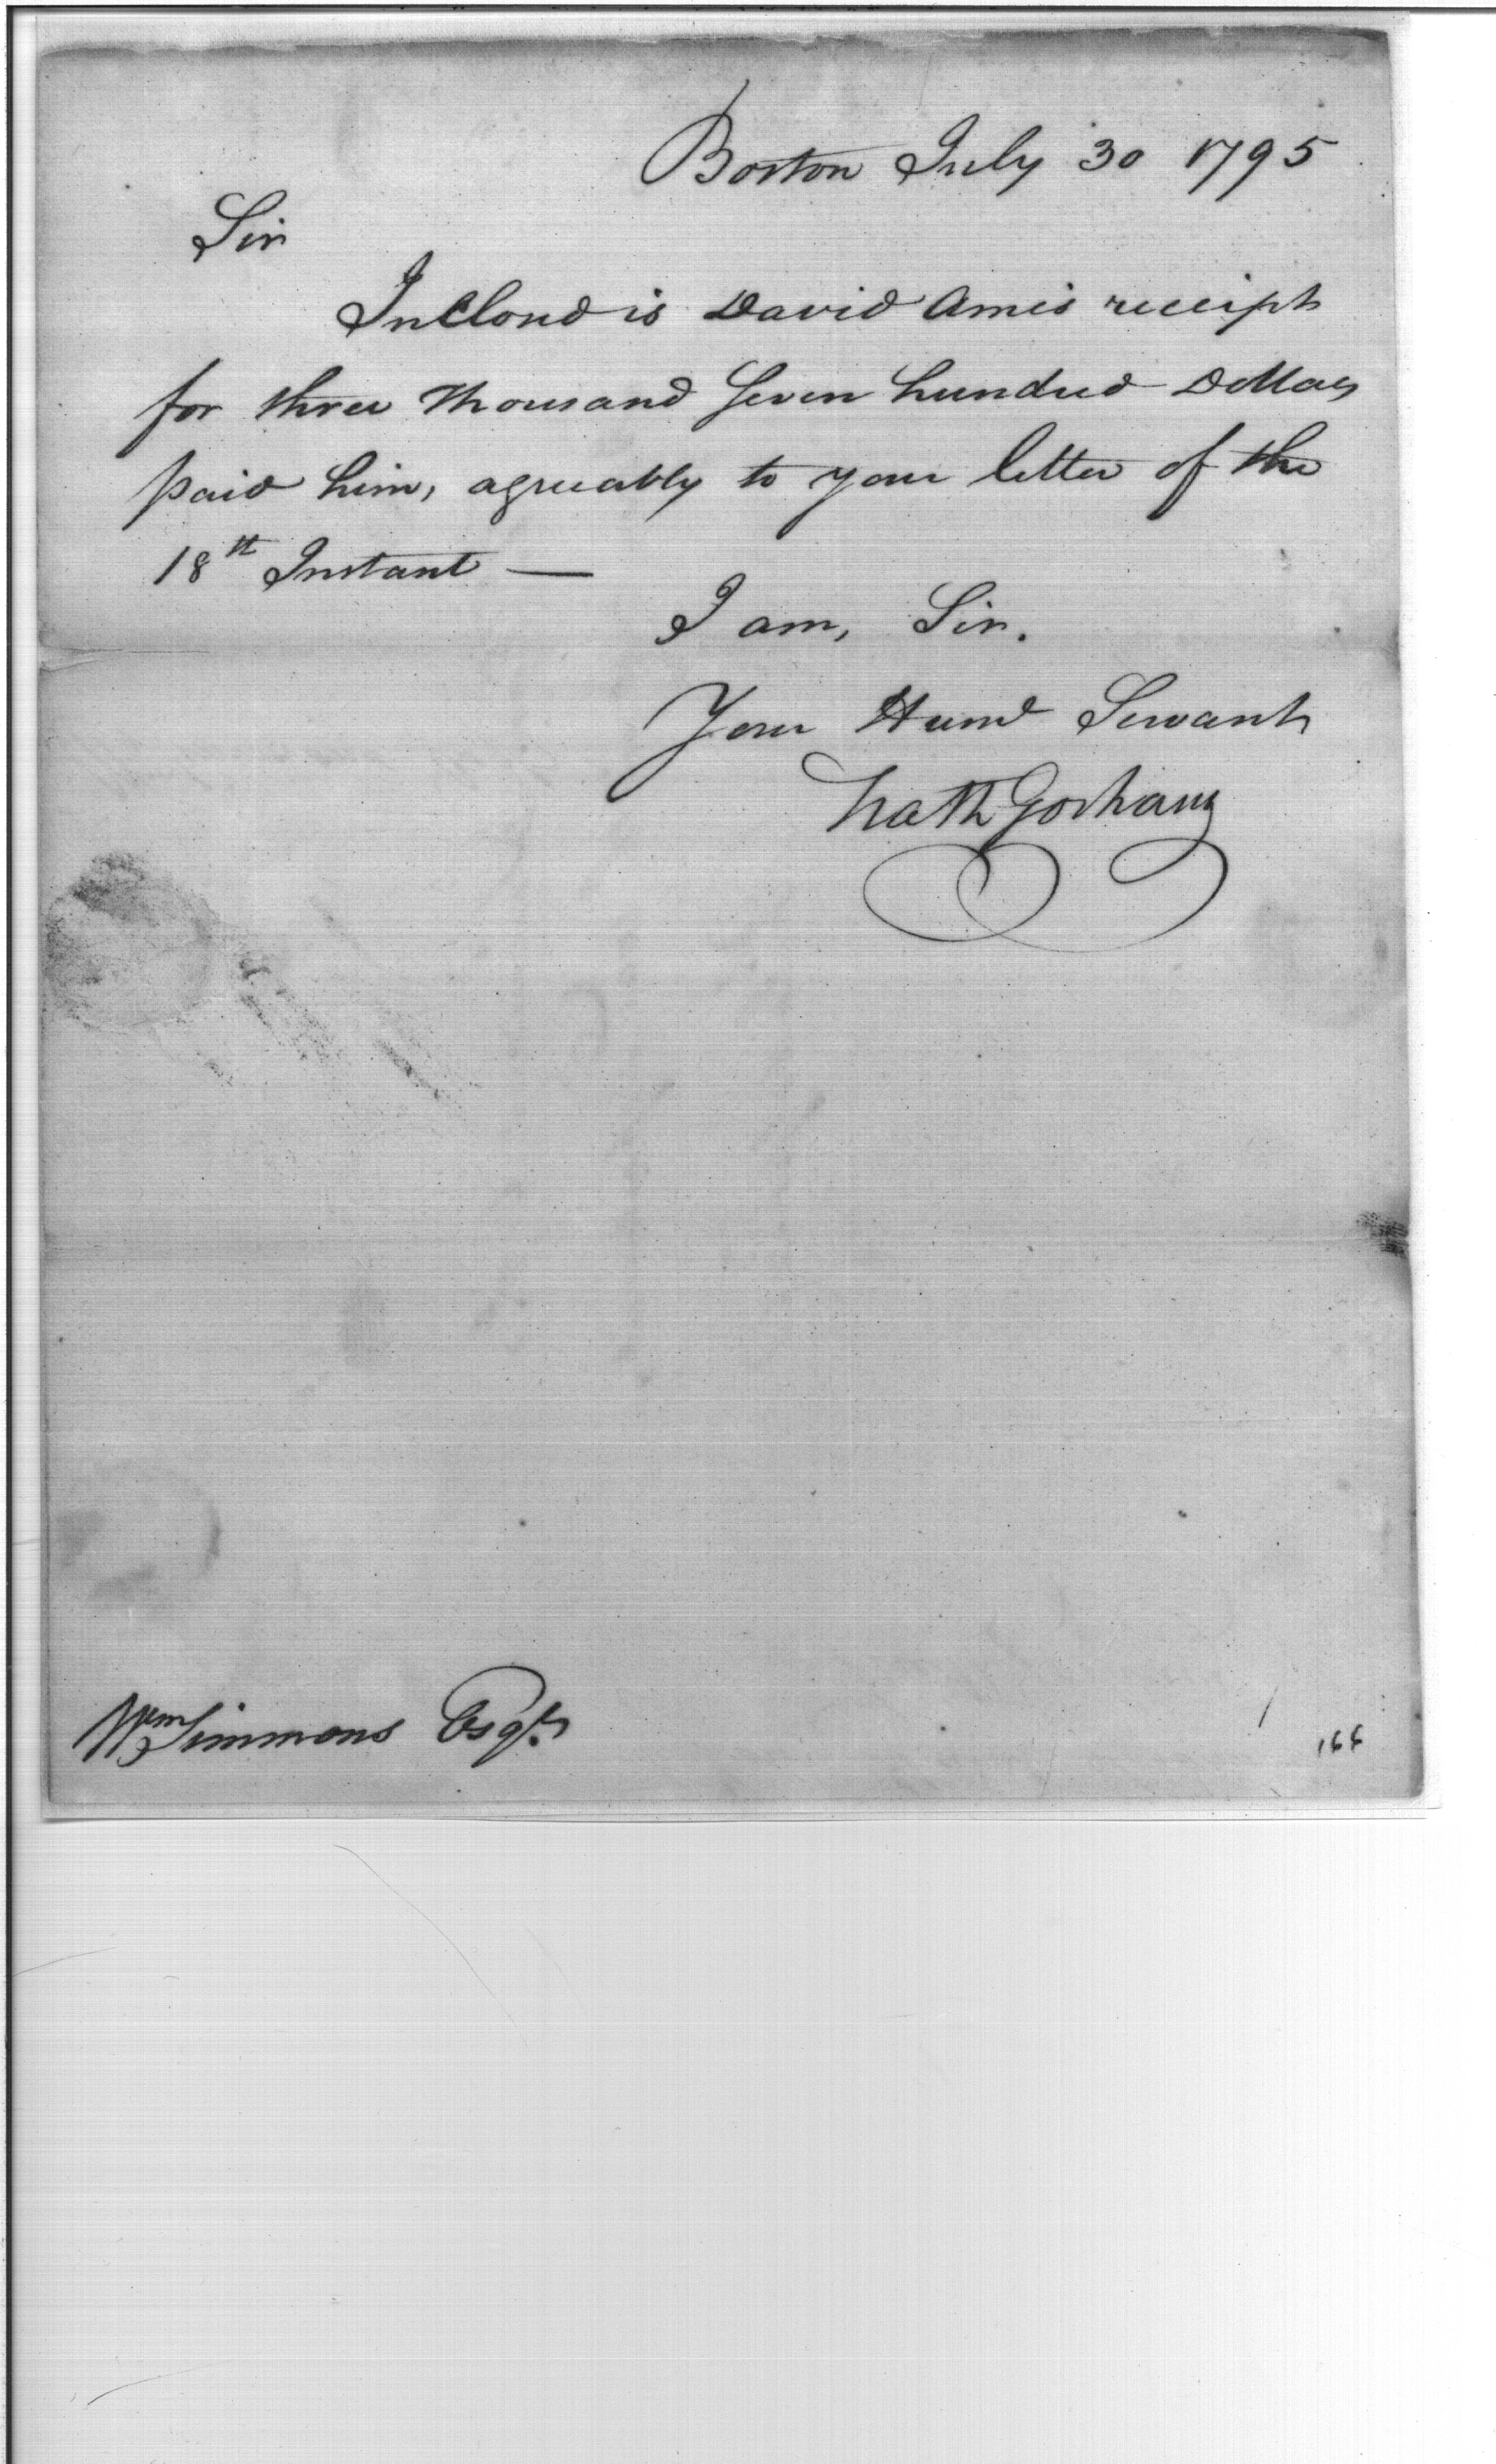 Boston July 30 1795
Sir
Inclosed is David Ames receipt
for three thousand Seven hundred Dollars
paid him, agreeably to your letter of the
18th Instant —
I am, Sir.
Your Humb Servant
Nath Gorham
Wm Simmons Esqr.
166